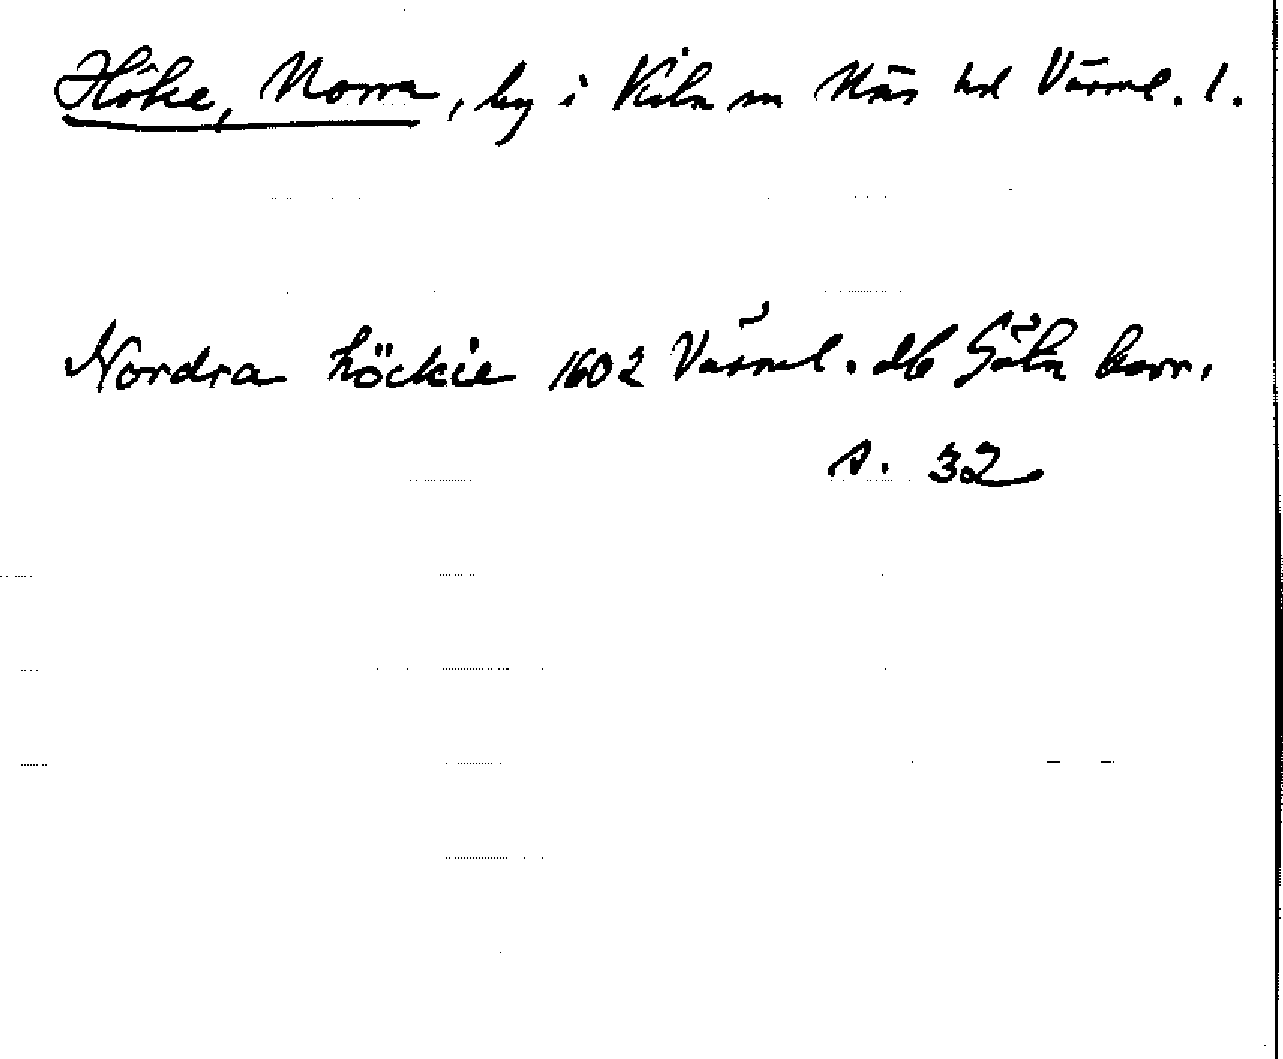 Höke, Norra, by i Kila sn Näs hd Värml. l.
Nordra höckie 1602 Värml. db Säln korr.
s. 32